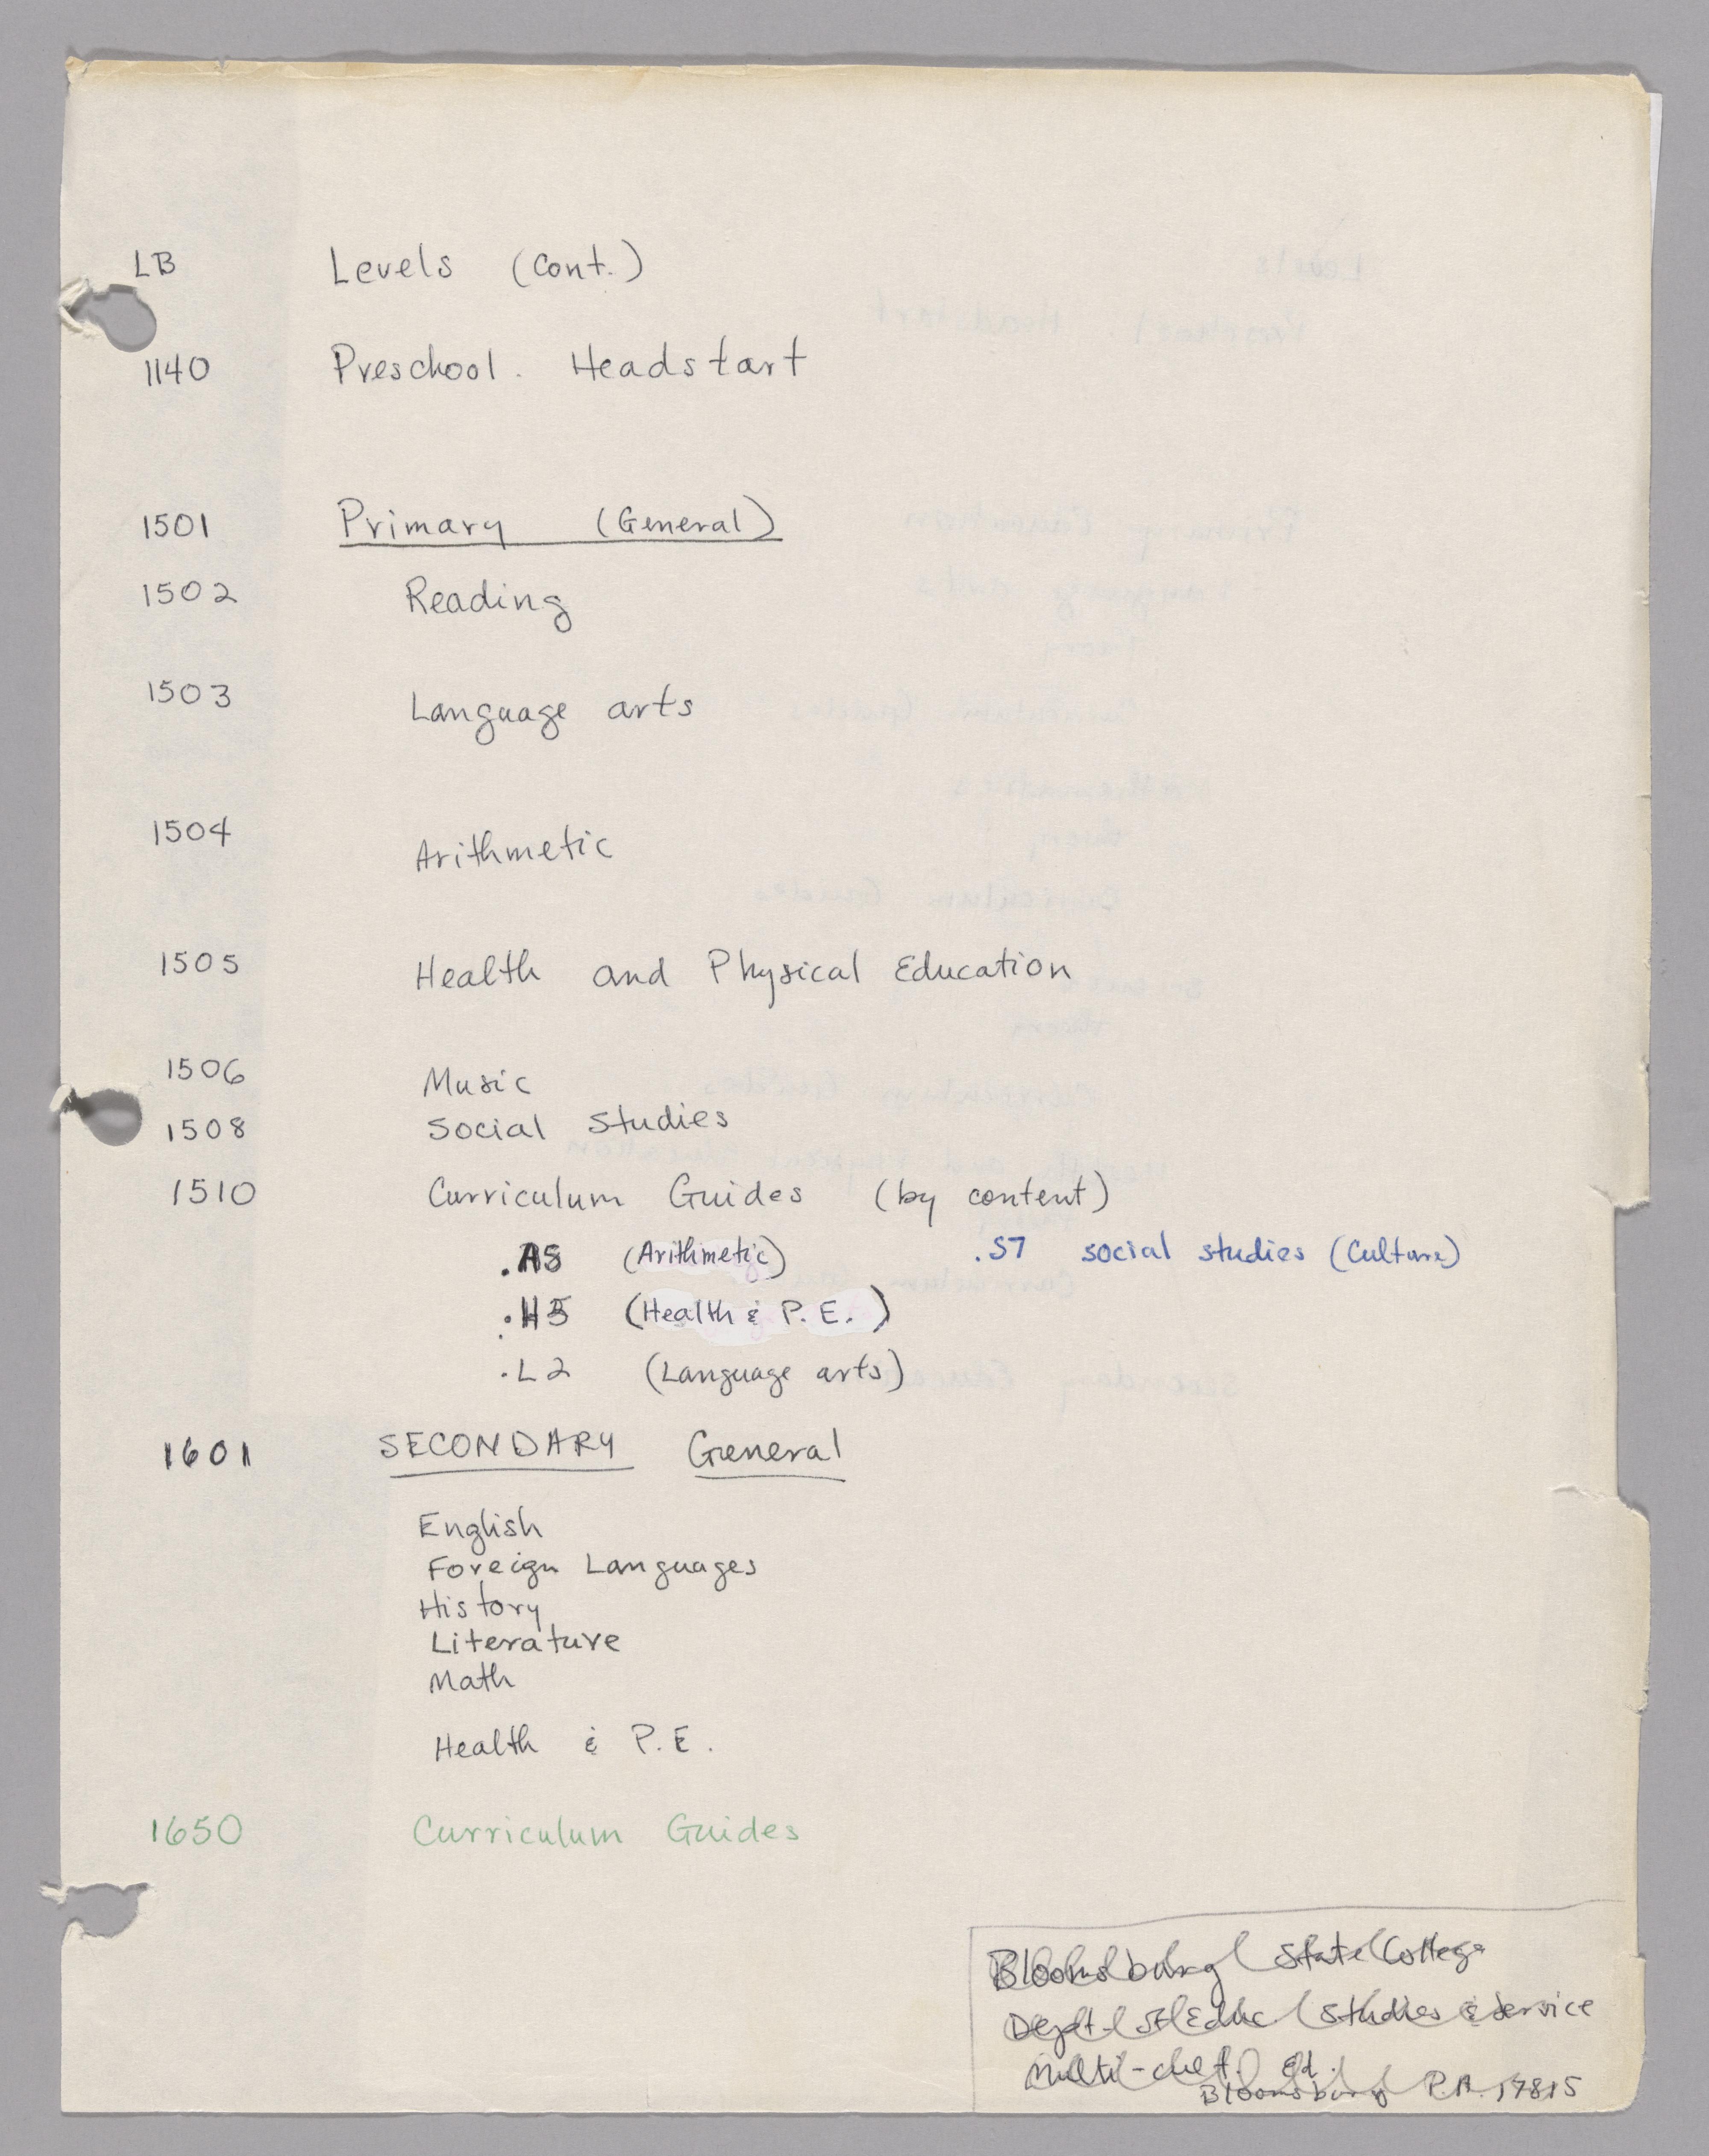 LB Levels (Cont.)
1140 Preschool. Headstart
1501 Primary (General)
1502 Reading
1503 Language arts
1504 Arithmetic
1505 Health and Physical Education
1506 Music
1508 Social Studies
1510 Curriculum Guides (by content)
.A5 (Arithmetic) .S7 social studies (Culture)
.H5 (Health & P.E.)
.L2 (Language arts)
1601 SECONDARY General
English
Foreign Languages
History
Literature
Math
Health & P.E.
1650 Curriculum Guides
Bloomsburg State College
Dept of Educ Studies & Service
Multi-cult. Ed.
Bloomsburg P.A. 17815